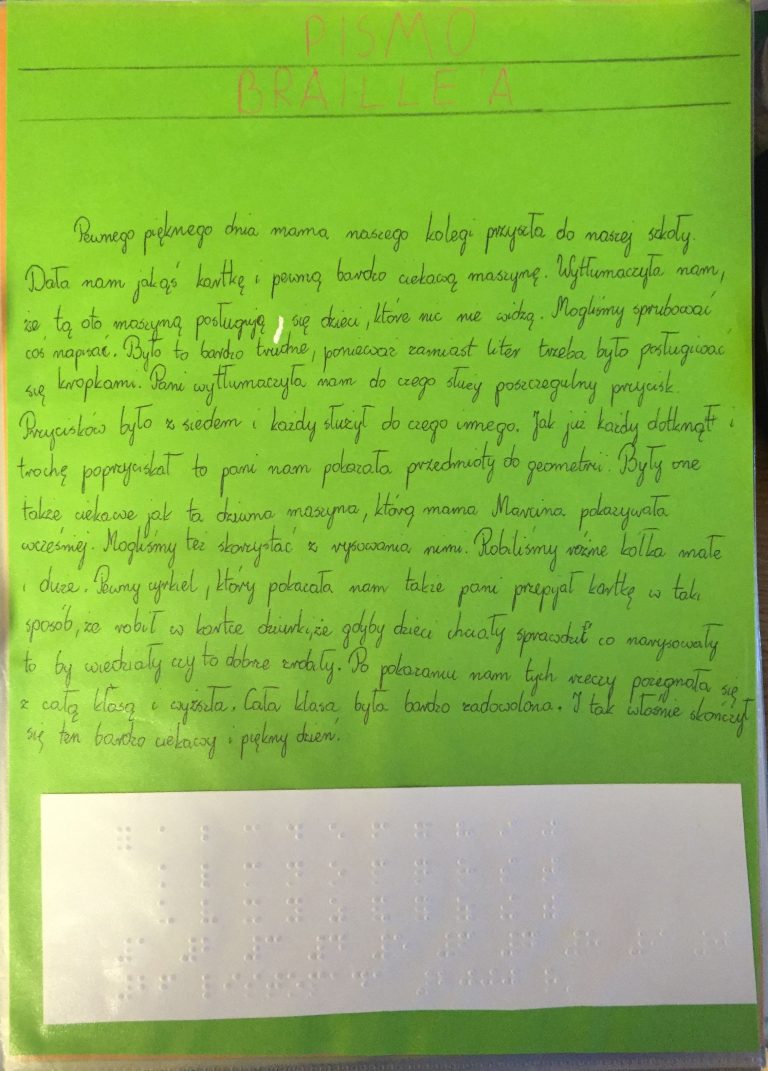 PISMO
BRAILLE'A
Pewnego pięknego dnia mama naszego kolegi przyszła do naszej szkoły.
Dała nam jakąś kartkę i pewną bardzo ciekawą maszynę. Wytłumaczyła nam,
że tą oto maszyną posługują się dzieci, które nic nie widzą. Mogliśmy sprubować
coś napisać. Było to bardzo trudne, ponieważ zamiast liter trzeba było posługiwać
się kropkami. Pani wytłumaczyła nam do czego służy poszczegulny przycisk.
Przycisków było z siedem i każdy służył do czego innego. Jak już każdy dotknął i
trochę poprzyciskał to pani nam pokazała przedmioty do geometrii. Były one
także ciekawe jak ta dziwna maszyna, którą mama Marcina pokazywała
wcześniej. Mogliśmy też skorzystać z rysowania nimi. Robiliśmy rożne kołka małe
i duże. Pewny cyrkiel, który pokazała nam także pani przepijał kartkę w taki
sposób, że robił w kartce dziurki, że gdyby dzieci chciały sprawdzić co narysowały
to by wiedziały czy to dobrze zrobiły. Po pokazaniu nam tych rzeczy pożegnała się
z całą klasą i wyszła. Cała klasa była bardzo zadowolona. I tak właśnie skończył
się ten bardzo ciekawy i piękny dzień.